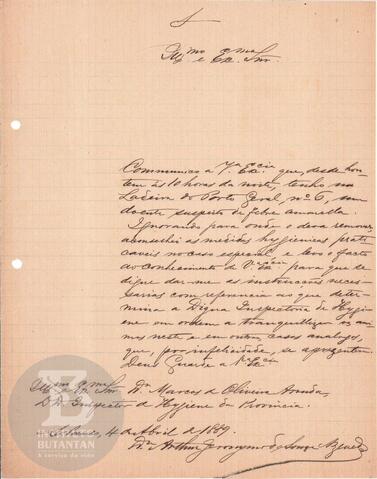 Ill.mo e Ex.mo Snr.
Communico a V.ª Ex.cia que, desde hon-
tem ás 10 horas da noite, tenho na
Ladeira do Porto Geral, nº 6, um
doente suspeito de febre amarella.
Ignorando para onde o deva remover,
aconselhei as medidas hygienicas prati-
caveis no caso especial e levo o facto
ao conhecimento de V.ª Ex.cia para que se
digne dar-me as instrucções neces-
sarias com referencia ao que deter-
mina a Digna Inspectoria de Hygi-
ene em ordem a tranquillizar os ani-
mos neste e em outros casos analogos,
que, por infelicidade, se apresentem.
Deus Guarde a V.ª Ex.cia
Ill.mo e Ex.mo Snr. Dr. Marcos de Oliveira Arruda,
D.D. Inspector de Hygiene da Provincia.
4 de Abril de 1889
Dr. Arthur Jeronymo de Souza Azevedo
BUTANTAN
A serviço da vida